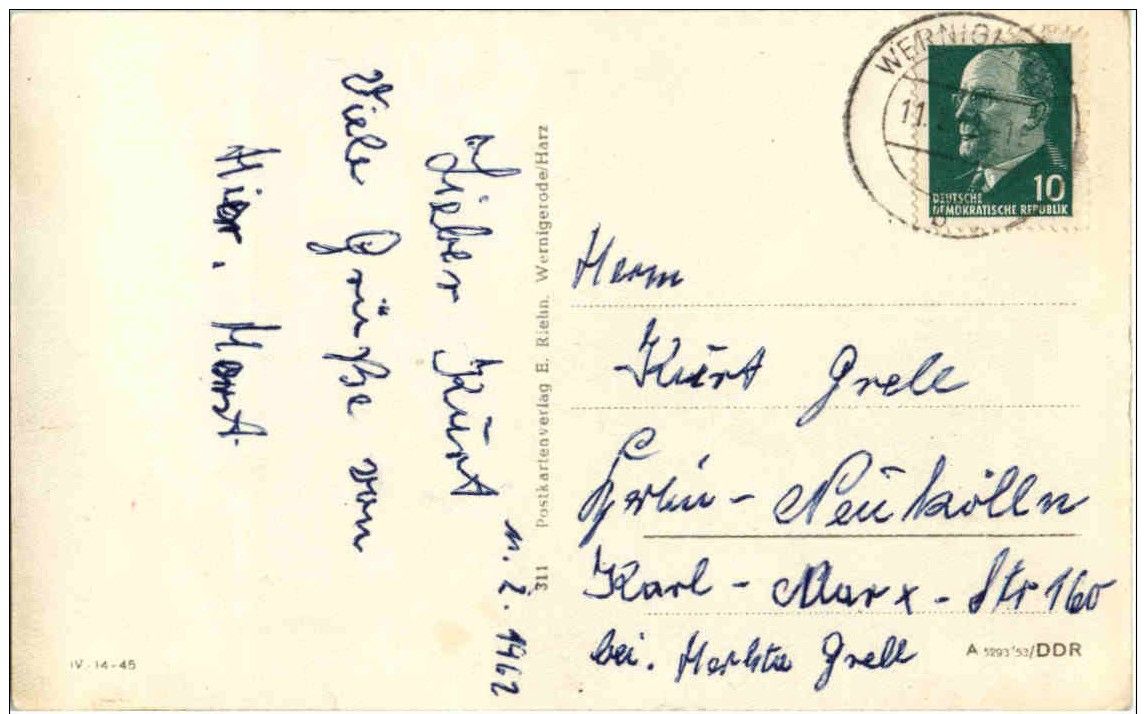 11. 2. 1962
Lieber Kurt
Viele Grüße von
Hier. Horst
311 Postkartenverlag E. Riehn. Wernigerode/Harz
IV-14-45
WERNIG
11.
b
10
DEUTSCHE
DEMOKRATISCHE REPUBLIK
Herrn
Kurt Grell
Berlin-Neukölln
Karl-Marx-Str 160
bei. Grell
A 5293/53/DDR